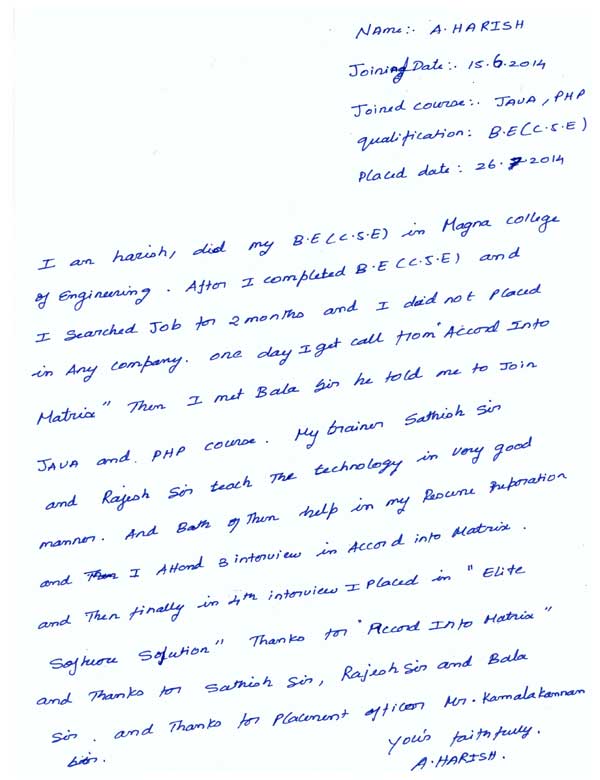 Name:. A. HARISH
Joining Date:. 15.6.2014
Joined course:. JAVA, PHP
qualification: B.E (C.S.E)
Placed date: 26.7.2014
I am harish, did my B.E (C.S.E) in Magna college
of Engineering. After I completed B.E (C.S.E) and
I Searched Job for 2 months and I did not placed
in Any company. one day I get call from "Accord Into
Matrix" Then I met Bala Sir he told me to Join
JAVA and PHP course. My trainer Sathish Sir
and Rajesh Sir teach The technology in very good
manner. And Both of Them help in my Resume Preparation
and I Attend 3 interview in Accord into Matrix.
and Then finally in 4th interview I Placed in "Elite
Software Solution" Thanks for "Accord Into Matrix"
and Thanks for Sathish Sir, Rajesh Sir and Bala
Sir. and Thanks for Placement officer Mr. Kamalakannan
Sir.
Your's faithfully.
A. HARISH.